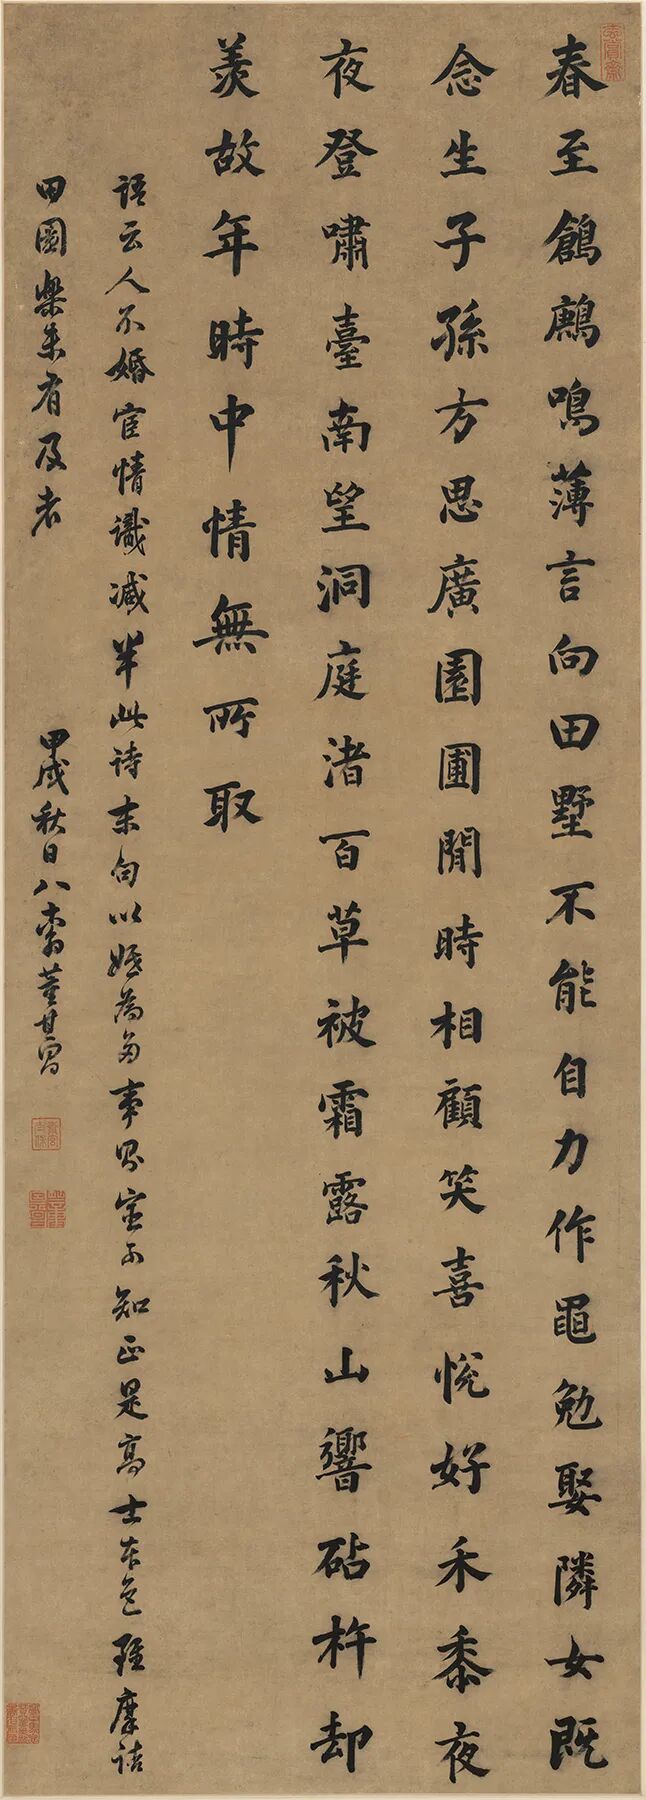 春至鶬鶊鳴薄言向田墅不能自力作黽勉娶隣女既
念生子孫方思廣園圃閒時相顧笑喜悅好禾黍夜
夜登嘯臺南望洞庭渚百草被霜露秋山響砧杵却
羨故年時中情無所取
語云人不婚宦情識減半此詩末句以婚為多事寔不知正是高士本色雖摩詰
田園樂未有及者
甲戌秋日八十翁董其昌